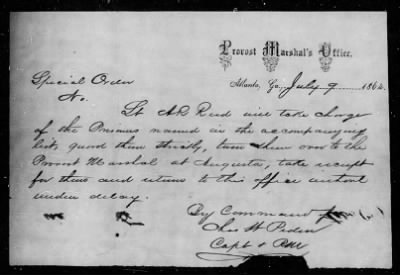 Provost Marshal's Office,
Atlanta, Ga., July 9 1864.
Special Order
No.
Lt A R Reed will take charge
of the Prisoners named in the accompanying
list, guard them strictly, turn them over to the
Provost Marshal at Augusta, take receipt
for them and return to this office without
undue delay.
By Command
Chas H
Capt & P M